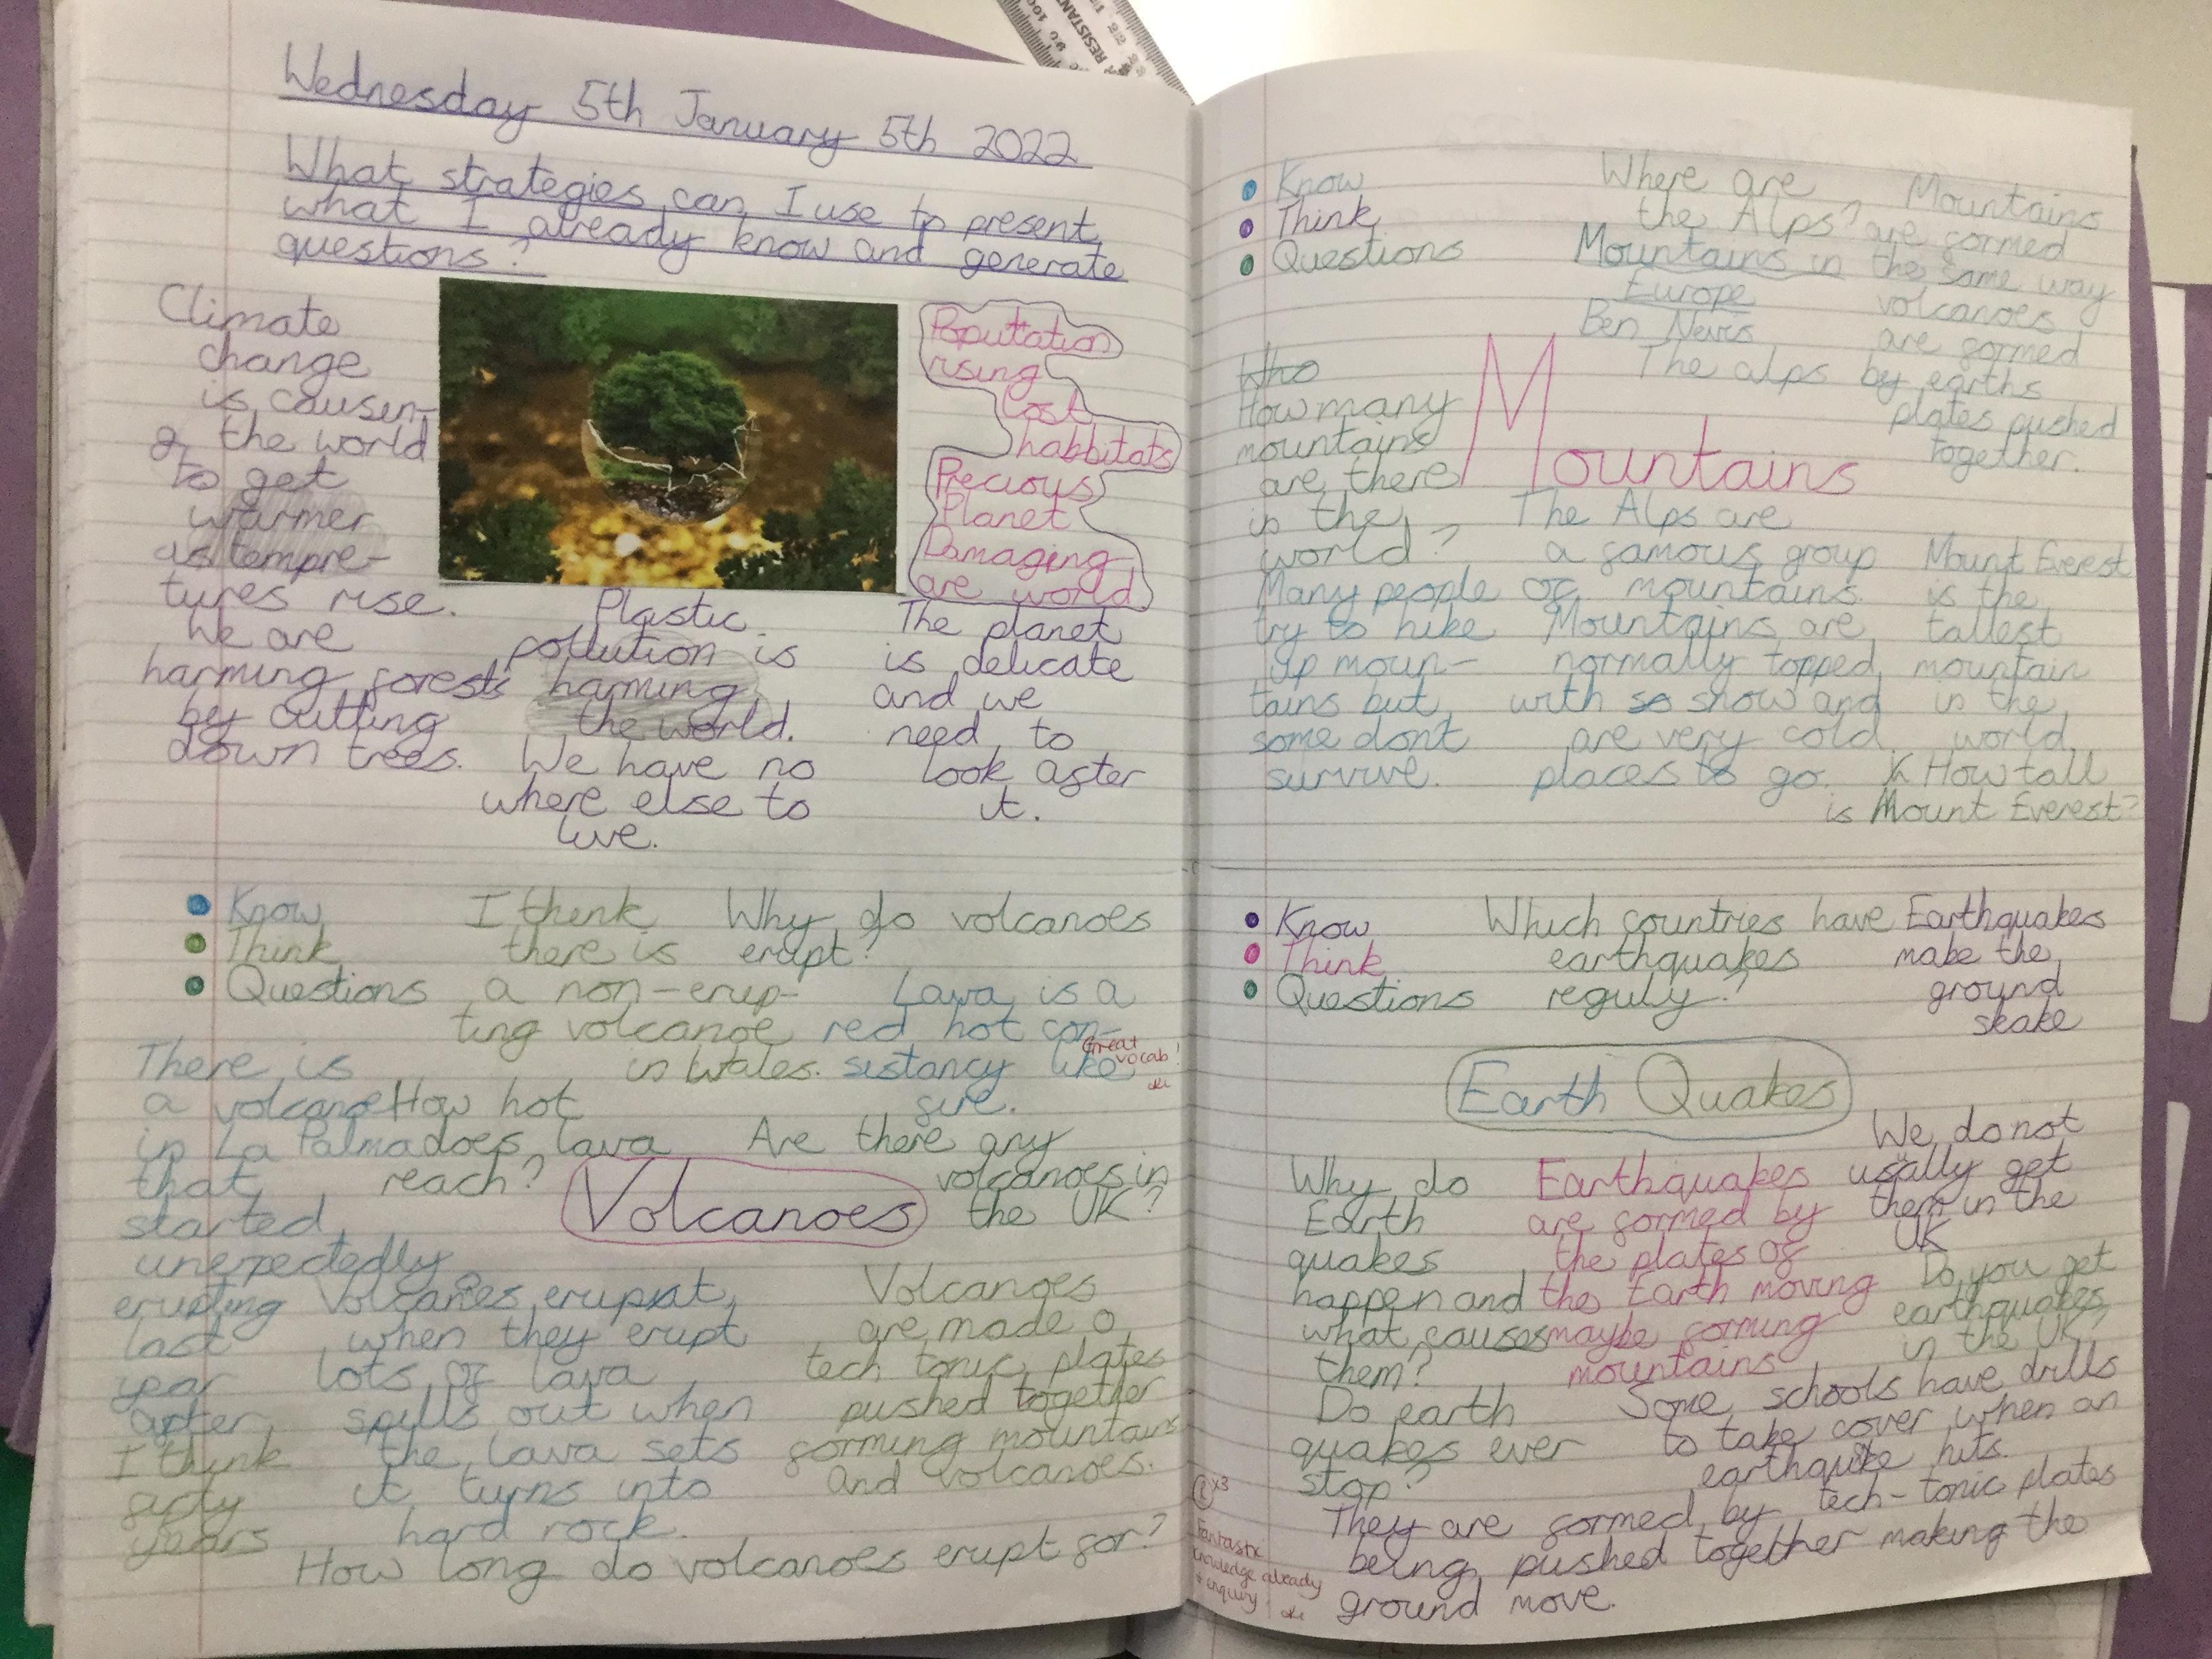 Wednesday 5th January 5th 2022
What strategies can I use to present
what I already know and generate
questions?
Climate
change
is causen-
g the world
to get
warmer
as tempre-
tures rise.
We are
harming forests
by cutting
down trees.
Popultation
rising
Lost
habbitats
Precious
Planet
Damaging
are world
Plastic
pollution is
harming
the world.
We have no
where else to
live.
The planet
is delicate
and we
need to
look after
it.
Know
Think
Questions
I think
there is
a non-erup-
ting volcanoe
in Wales.
Why do volcanoes
erupt?
Lava is a
red hot con-
sistancy like
fire.
Great
vocab!
There is
a volcanoe
in La Palma
that
started
unexpectedly
erupting
last
year
after
I think
fifty
years
How hot
does lava
reach?
Are there any
volcanoes in
the UK?
Volcanoes
Volcanoes erupt at,
when they erupt
lots of lava
spills out when
the lava sets
it turns into
hard rock.
Volcanoes
are made o
tech tonic plates
pushed together
forming mountains
and volcanoes.
How long do volcanoes erupt for?
Know
Think
Questions
Where are
the Alps?
Mountains in
Europe
Ben Nevis
The alps
Mountains
are formed
the same way
volcanoes
are formed
by earths
plates pushed
together.
Who
How many
mountains
are there
in the
world?
Mountains
Many people
try to hike
up moun-
tains but
some dont
survive.
The Alps are
a famous group
of mountains.
Mountains are
normally topped
with so snow and
are very cold
places to go.
Mount Everest
is the
tallest
mountain
in the
world.
K How tall
is Mount Everest?
Know
Think
Questions
Which countries have
earthquakes
reguly?
Earthquakes
make the
ground
skake
Earth Quakes
Why do
Earth
quakes
happen and
what causes
them?
Earthquakes
are formed by
the plates of
the Earth moving
maybe forming
mountains
We do not
usally get
them in the
UK
Do you get
earthquakes
in the UK?
Do earth
quakes ever
stop?
Some schools have drills
to take cover when an
earthquike hits.
They are formed by tech-tonic plates
being pushed together making the
ground move.
x3
Fantastic
knowledge already
+ enquiry